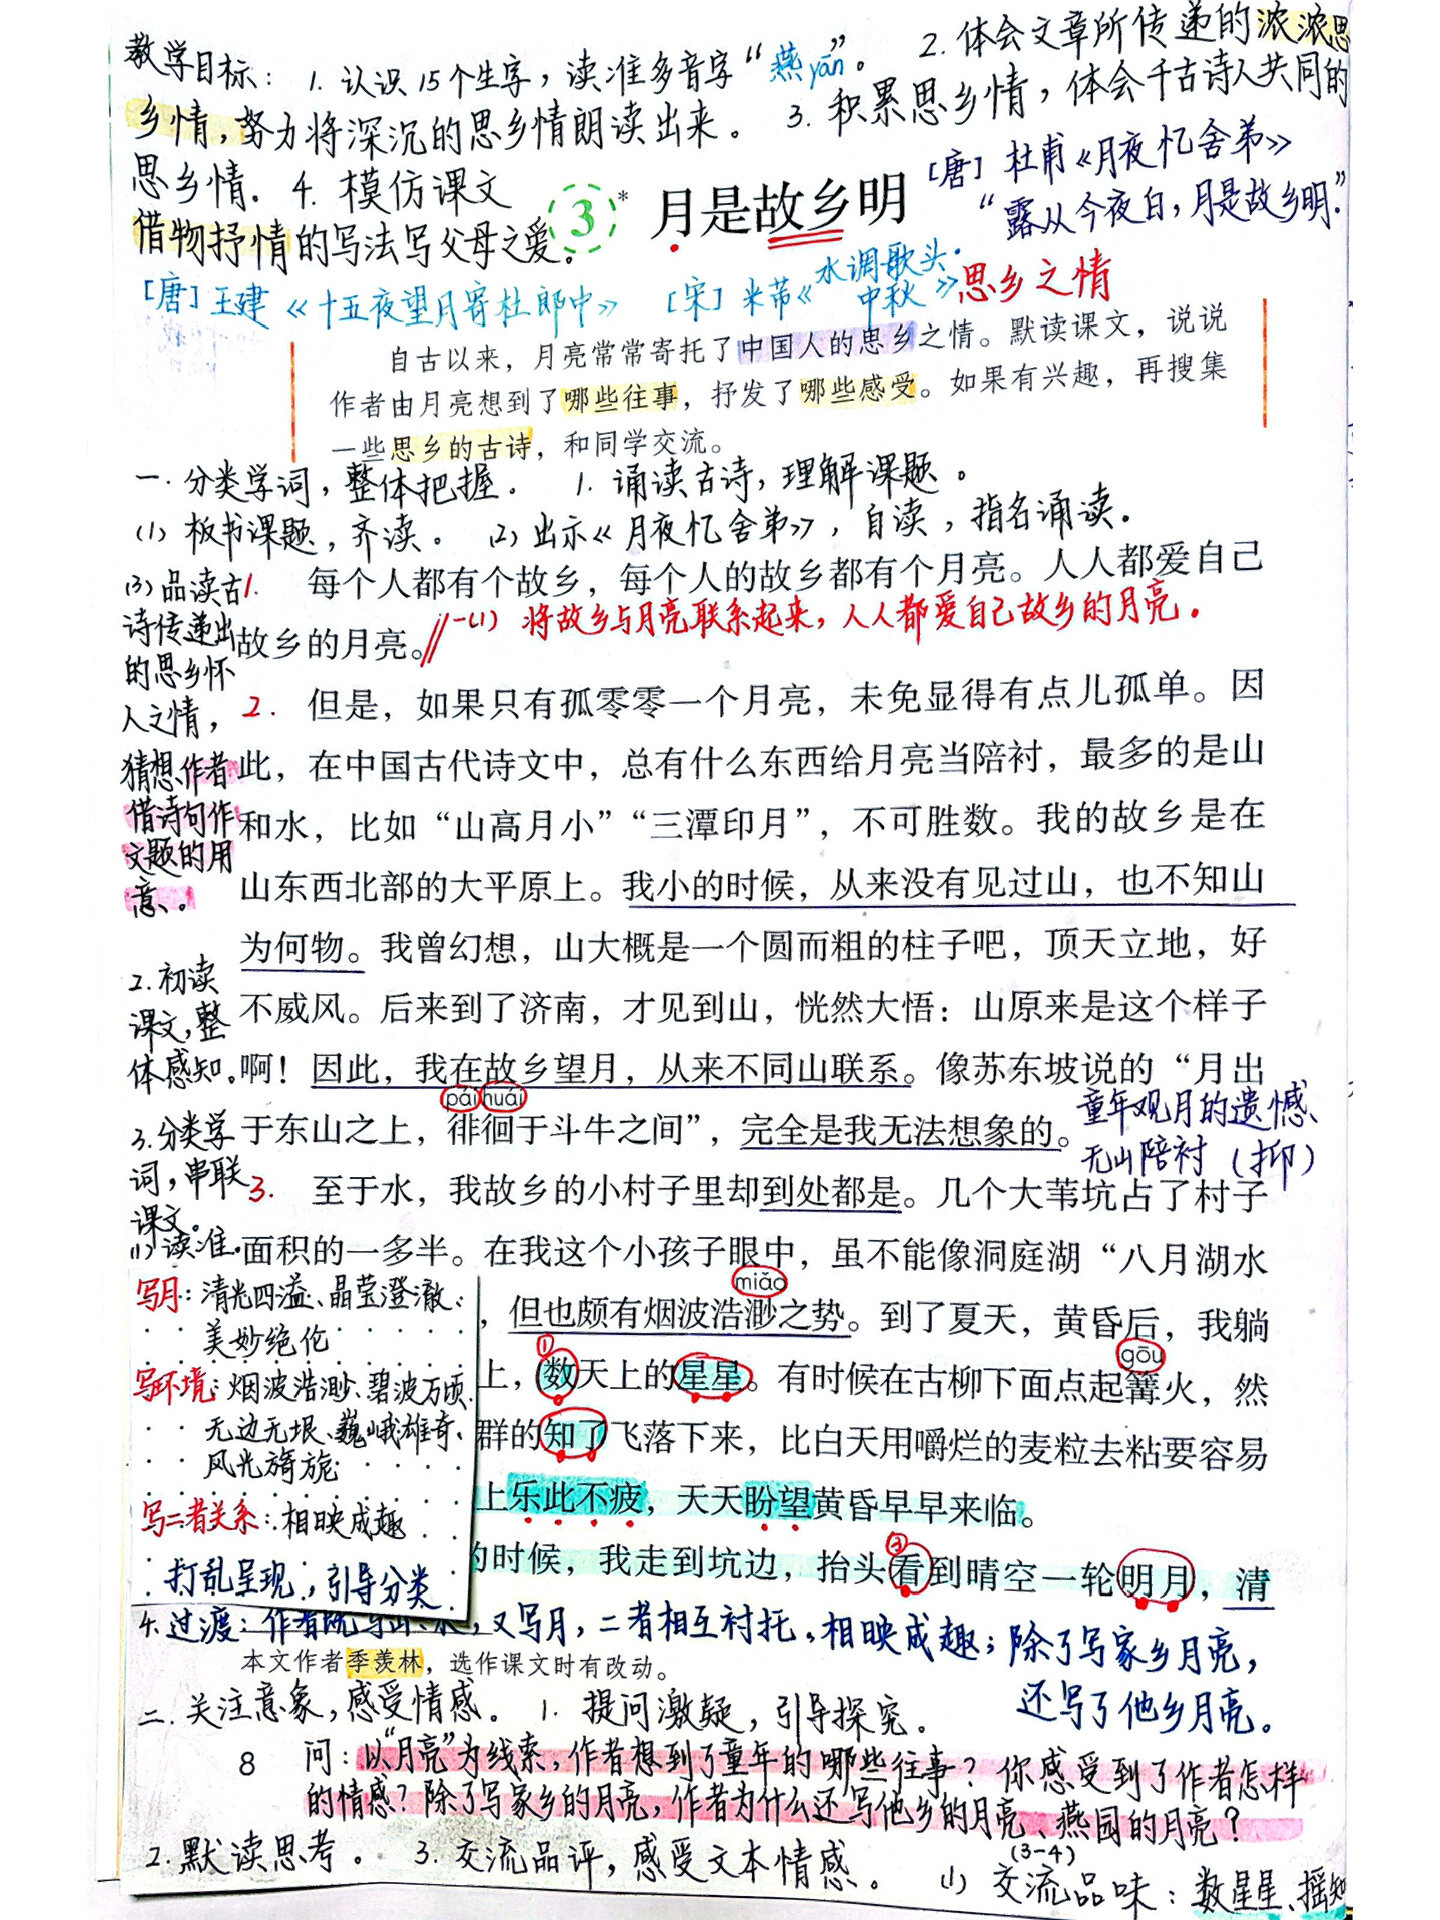 教学目标：1. 认识15个生字，读准多音字“燕yān”。 2. 体会文章所传递的浓浓思
乡情，努力将深沉的思乡情朗读出来。 3. 积累思乡情，体会千古诗人共同的
思乡情。 4. 模仿课文
借物抒情的写法写父母之爱。
3* 月是故乡明
[唐] 杜甫《月夜忆舍弟》
“露从今夜白，月是故乡明”
[唐] 王建《十五夜望月寄杜郎中》 [宋] 米芾《水调歌头·中秋》 思乡之情
自古以来，月亮常常寄托了中国人的思乡之情。默读课文，说说
作者由月亮想到了哪些往事，抒发了哪些感受。如果有兴趣，再搜集
一些思乡的古诗，和同学交流。
一. 分类学词，整体把握。 1. 诵读古诗，理解课题。
(1) 板书课题，齐读。 (2) 出示《月夜忆舍弟》，自读，指名诵读。
(3) 品读古
诗传递出
的思乡怀
人之情，
猜想作者
借诗句作
文题的用
意。
2. 初读
课文，整
体感知。
3. 分类学
词，串联
课文。
(1) 读准。
1. 每个人都有个故乡，每个人的故乡都有个月亮。人人都爱自己
故乡的月亮。
一(1) 将故乡与月亮联系起来，人人都爱自己故乡的月亮。
2. 但是，如果只有孤零零一个月亮，未免显得有点儿孤单。因
此，在中国古代诗文中，总有什么东西给月亮当陪衬，最多的是山
和水，比如“山高月小”“三潭印月”，不可胜数。我的故乡是在
山东西北部的大平原上。我小的时候，从来没有见过山，也不知山
为何物。我曾幻想，山大概是一个圆而粗的柱子吧，顶天立地，好
不威风。后来到了济南，才见到山，恍然大悟：山原来是这个样子
啊！因此，我在故乡望月，从来不同山联系。像苏东坡说的“月出
pái huái
于东山之上，徘徊于斗牛之间”，完全是我无法想象的。
童年观月的遗憾、
无山陪衬（抑）
3. 至于水，我故乡的小村子里却到处都是。几个大苇坑占了村子
面积的一多半。在我这个小孩子眼中，虽不能像洞庭湖“八月湖水
miǎo
，但也颇有烟波浩渺之势。到了夏天，黄昏后，我躺
① gōu
上，数天上的星星。有时候在古柳下面点起篝火，然
群的知了飞落下来，比白天用嚼烂的麦粒去粘要容易
上乐此不疲，天天盼望黄昏早早来临。
②
的时候，我走到坑边，抬头看到晴空一轮明月，清
写月：清光四溢、晶莹澄澈、
美妙绝伦
写环境：烟波浩渺、碧波万顷、
无边无垠、巍峨雄奇、
风光旖旎
写二者关系：相映成趣
打乱呈现，引导分类
4. 过渡：作者既写山、水，又写月，二者相互衬托，相映成趣；除了写家乡月亮，
还写了他乡月亮。
本文作者季羡林，选作课文时有改动。
二. 关注意象，感受情感。 1. 提问激疑，引导探究。
8
问：以“月亮”为线索，作者想到了童年的哪些往事？你感受到了作者怎样
的情感？除了写家乡的月亮，作者为什么还写他乡的月亮、燕园的月亮？
2. 默读思考。 3. 交流品评，感受文本情感。 (1) 交流品味(3-4)：数星星、摇知